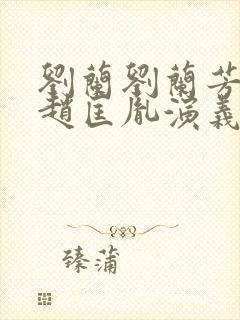 劉蘭劉蘭芳
趙匡胤演義
臻蒲